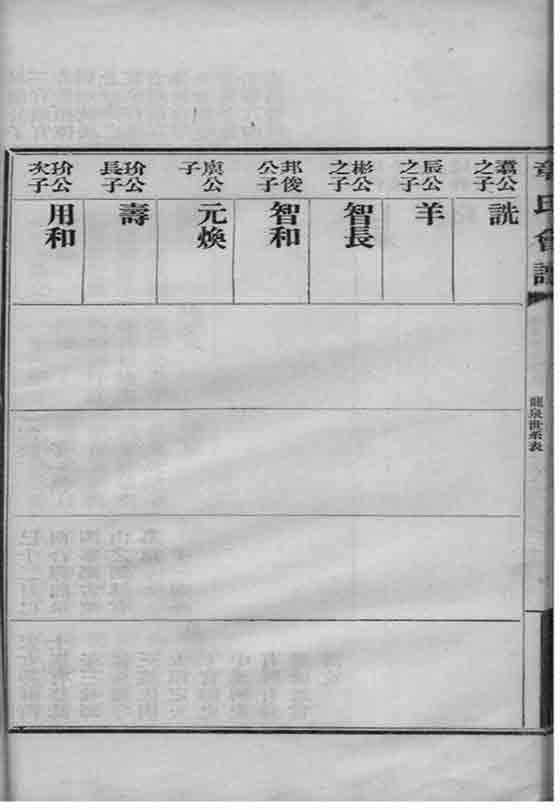 章氏會譜
龍泉世系表
公
之子
詵
辰公
之子
羊
彬公
之子
智長
邦俊
公子
智和
虞公
子
元煥
玠公
長子
壽
玠公
次子
用和